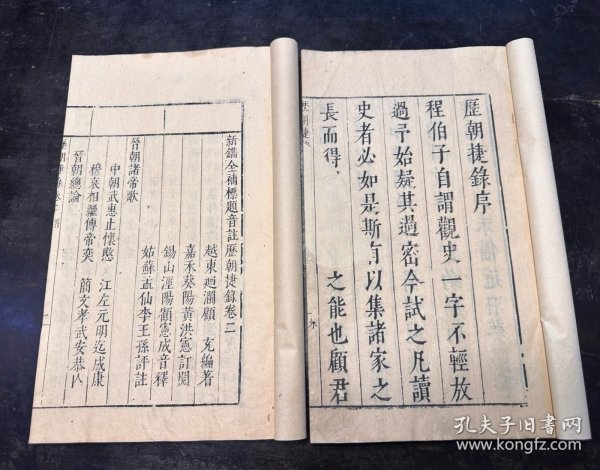 歷朝捷錄序
程伯子自謂觀史一字不輕放
過予始疑其過密今試之凡讀
史者必如是斯有以集諸家之
長而得 之能也顧君
歷朝捷
新鐫全補標題音註歷朝捷錄卷二
越東迴瀾顧 充編著
嘉禾葵陽黃洪憲訂閱
錫山涇陽顧憲成音釋
姑蘇孟仙李王孫評註
晉朝諸帝歌
中朝武惠止懷愍 江左元明迄成康
穆哀相繼傳帝奕 簡文孝武安恭亾
晉朝總論
孔夫子旧书网
www.kongfz.com